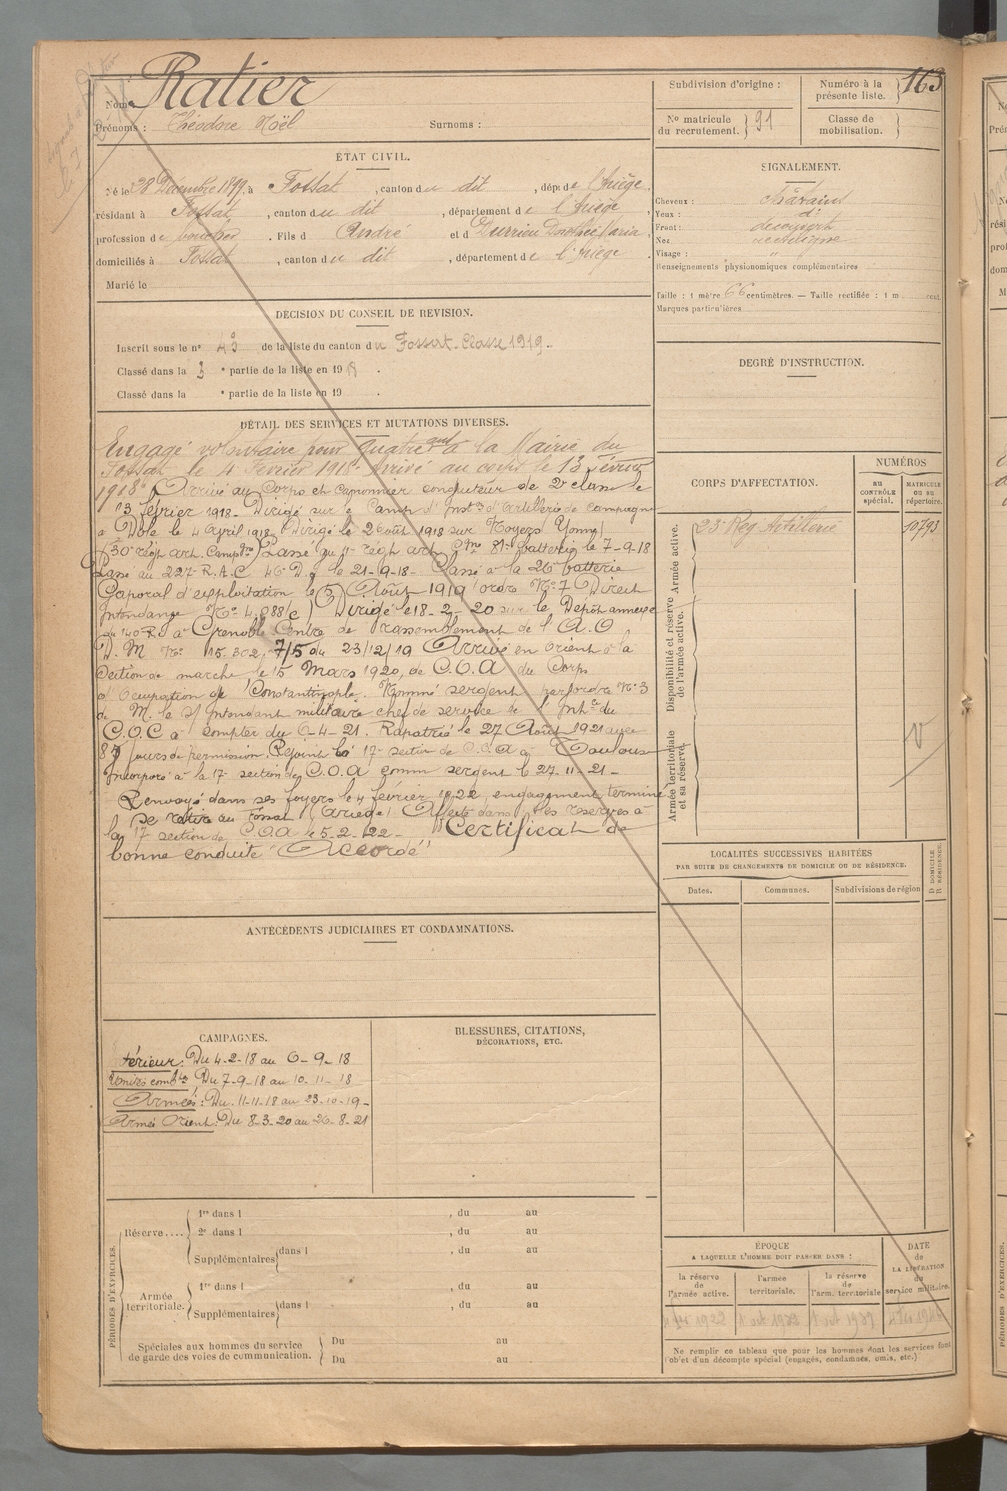 Nom : Ratier
Prénoms : Théodore Noël Surnoms :
Subdivision d'origine :
Numéro à la présente liste. 163
N° matricule du recrutement. 91
Classe de mobilisation.
ÉTAT CIVIL.
Né le 28 Décembre 1899, à Fossat, canton du dit, dépt de l'Ariège.
résidant à Fossat, canton du dit, département de l'Ariège,
profession de boucher. Fils d André et d Durrieu Dorothée Maria
domiciliés à Fossat, canton du dit, département de l'Ariège.
Marié le
SIGNALEMENT.
Cheveux : châtains
Yeux : d°
Front : découvert
Nez rectiligne
Visage : "
Renseignements physionomiques complémentaires
Taille : 1 mètre 66 centimètres. — Taille rectifiée : 1 m cent.
Marques particulières
DÉCISION DU CONSEIL DE REVISION.
Inscrit sous le n° 43 de la liste du canton du Fossat. Classe 1919.
Classé dans la 3 e partie de la liste en 1918.
Classé dans la e partie de la liste en 19 .
DEGRÉ D'INSTRUCTION.
DÉTAIL DES SERVICES ET MUTATIONS DIVERSES.
Engagé volontaire pour quatre ans à la Mairie du
Fossat le 4 Février 1918. Arrivé au corps le 13 février
1918. Arrivé au Corps et canonnier conducteur de 2e classe le
13 février 1918. Dirigé sur le Camp d'Inston d'artillerie de campagne
à Dôle le 4 avril 1918. Dirigé le 2 août 1918 sur Noyers Yonne
(30e régt art. Campgne) Passé au 11e régt art Cgne 81e batterie le 7-9-18
Passé au 227e R.A.C 46e D.I le 21-9-18. Passé à la 26e batterie
Caporal d'exploitation le 5 Août 1919 (ordre N° 7 Direct
Intendance N° 4.088/c) Dirigé le 18-2-20 sur le Dépôt annexe
du 140e R.I à Grenoble Centre de rassemblement de l'A.O
D. M N° 15.302. 7/5 du 23/12/19 Arrivé en Orient à la
Section de marche le 15 Mars 1920, de C.O.A du Corps
d'Occupation de Constantinople. Nommé sergent par ordre N° 3
de M. le S/ Intendant militaire chef de service de l'Intce du
C.O.C à compter du 6-4-21. Rapatrié le 27 Août 1921 avec
jours de permission. Rejoint la 17e section de C.O.A à Toulouse
Incorporé à la 17e section de C.O.A comm sergent le 27-11-21-
Renvoyé dans ses foyers le 4 février 1922, engagement terminé
se retire au Fossat (Ariège) Affecté dans les réserves à
la 17 section de C.O.A le 5-2-22- "Certificat de
bonne conduite Accordé"
CORPS D'AFFECTATION.
NUMÉROS
au contrôle spécial.
matricule ou au répertoire.
Armée active.
23e Reg Artillerie 10793
Disponibilité et réserve de l'armée active.
Armée territoriale et sa réserve.
LOCALITÉS SUCCESSIVES HABITÉES
PAR SUITE DE CHANGEMENTS DE DOMICILE OU DE RÉSIDENCE.
Dates. Communes. Subdivisions de région
D DOMICILE
R RÉSIDENCE.
ANTÉCÉDENTS JUDICIAIRES ET CONDAMNATIONS.
CAMPAGNES.
térieur : Du 4-2-18 au 6-9-18
Du 7-9-18 au 10-11-18
Armées : Du 11-11-18 au 23-10-19-
Armée Orient : Du 8-3-20 au 26-8-21
BLESSURES, CITATIONS,
DÉCORATIONS, ETC.
PÉRIODES D'EXERCICES.
Réserve....
1re dans l , du au
2e dans l , du au
Supplémentaires dans l , du au
Armée territoriale.
1re dans l , du au
Supplémentaires dans l , du au
Spéciales aux hommes du service de garde des voies de communication.
Du au
Du au
ÉPOQUE
A LAQUELLE L'HOMME DOIT PASSER DANS :
la réserve de l'armée active.
l'armée territoriale.
la réserve de l'arm. territoriale
DATE de LA LIBÉRATION du service militaire.
Ne remplir ce tableau que pour les hommes dont les services font
l'objet d'un décompte spécial (engagés, condamnés, omis, etc.)